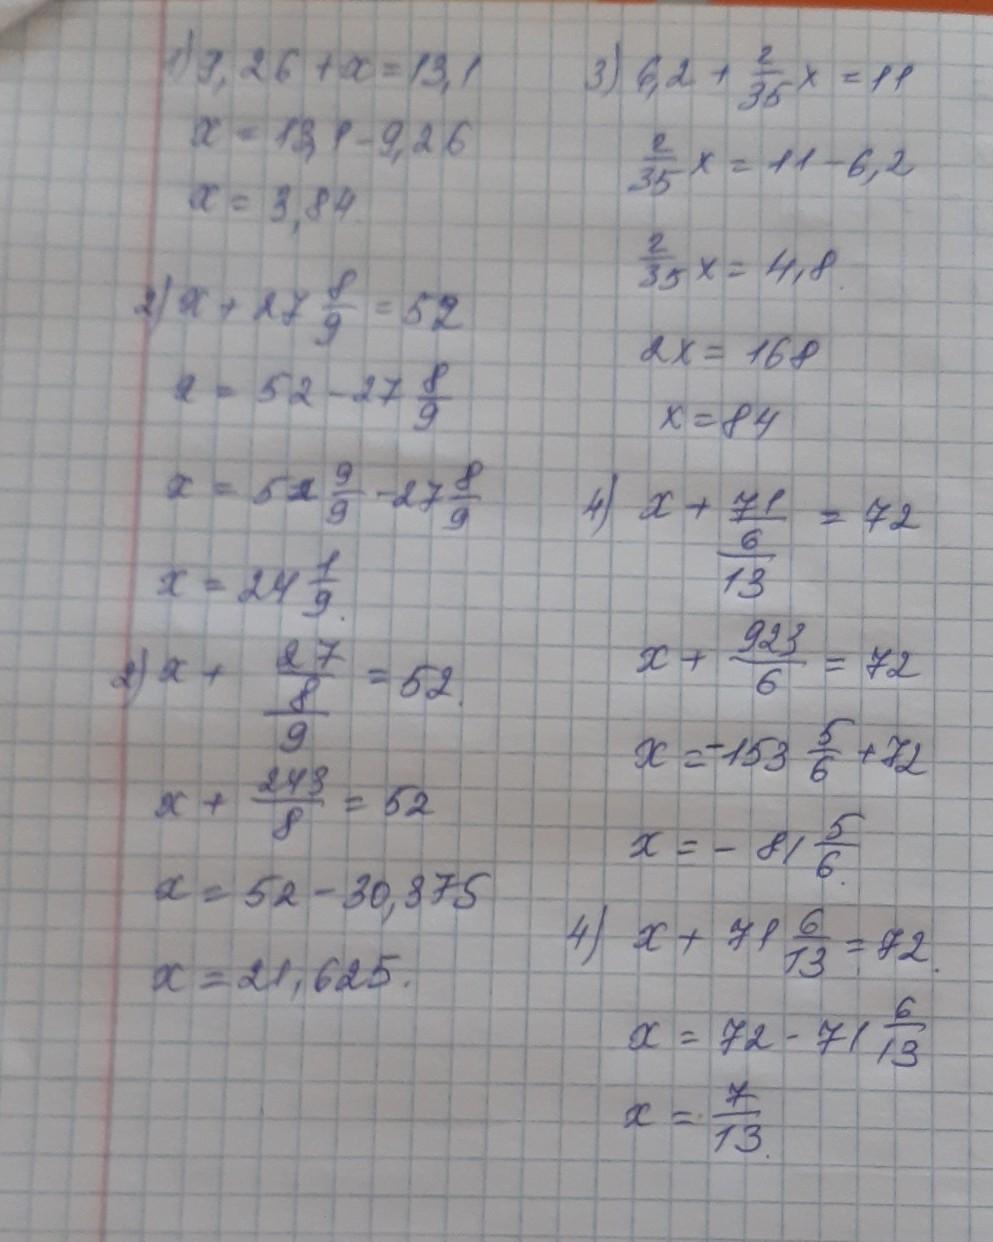 1) 9,26 + x = 13,1
x = 13,1 - 9,26
x = 3,84
2) x + 27 8/9 = 52
x = 52 - 27 8/9
x = 51 9/9 - 27 8/9
x = 24 1/9.
2) x + 27/(8/9) = 52.
x + 243/8 = 52
x = 52 - 30,375
x = 21,625.
3) 6,2 + 2/35 x = 11
2/35 x = 11 - 6,2
2/35 x = 4,8.
2x = 168
x = 84
4) x + 71/(6/13) = 72
x + 923/6 = 72
x = -153 5/6 + 72
x = - 81 5/6.
4) x + 71 6/13 = 72.
x = 72 - 71 6/13
x = 7/13.